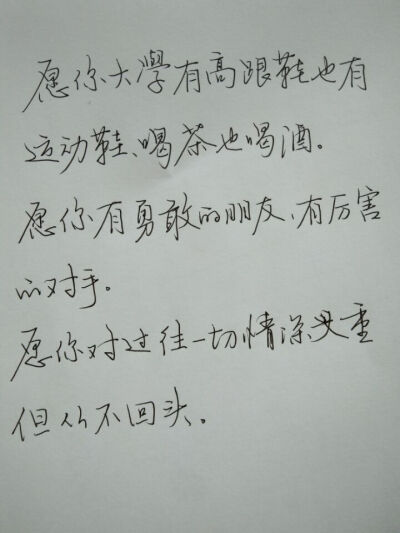 愿你大學有高跟鞋也有
运动鞋、喝茶也喝酒。
愿你有勇敢的朋友、有厉害
的对手。
愿你对过往一切情深义重
但从不回头。